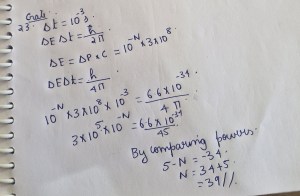 23. Δt = 10⁻³ s
ΔE Δt = h/2π
ΔE = ΔP × C = 10⁻ᴺ × 3×10⁸
ΔEΔt = h/4π
10⁻ᴺ × 3×10⁸ × 10⁻³ = 6.6×10⁻³⁴/4π
3×10⁵ × 10⁻ᴺ = 6.6×10⁻³⁴/45
By comparing powers.
5-N = -34
N = 34+5
= 39//